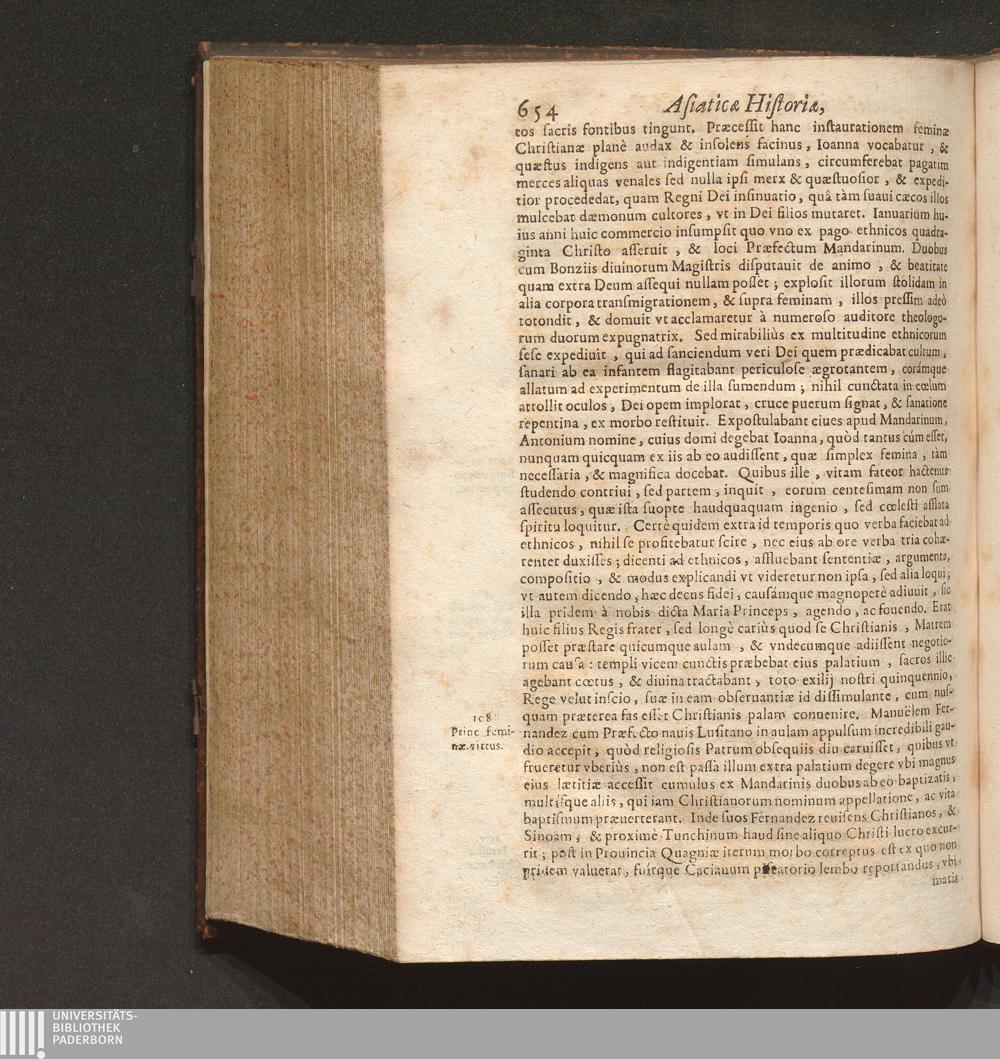 654 Aſiaticæ Hiſtoriæ,
tos ſacris fontibus tingunt. Præceſſit hanc inſtaurationem feminæ
Chriſtianæ planè audax & inſolens facinus, Ioanna vocabatur, &
quæſtus indigens aut indigentiam ſimulans, circumferebat pagatim
merces aliquas venales ſed nulla ipſi merx & quæſtuoſior, & expedi-
tior procededat, quam Regni Dei inſinuatio, quâ tàm ſuaui cæcos illos
mulcebat dæmonum cultores, vt in Dei filios mutaret. Ianuarium hu-
ius anni huic commercio inſumpſit quo vno ex pago ethnicos quadra-
ginta Chriſto aſſeruit, & loci Præfectum Mandarinum. Duobus
cum Bonziis diuinorum Magiſtris diſputauit de animo, & beatitate
quam extra Deum aſſequi nullam poſſet; exploſit illorum ſtolidam in
alia corpora tranſmigrationem, & ſupra feminam, illos preſſim adeò
totondit, & domuit vt acclamaretur à numeroſo auditore theologo-
rum duorum expugnatrix. Sed mirabiliùs ex multitudine ethnicorum
ſeſe expediuit, qui ad ſanciendum veri Dei quem prædicabat cultum,
ſanari ab ea infantem flagitabant periculoſe ægrotantem, corámque
allatum ad experimentum de illa ſumendum; nihil cunctata in cœlum
attollit oculos, Dei opem implorat, cruce puerum ſignat, & ſanatione
repentina, ex morbo reſtituit. Expoſtulabant ciues apud Mandarinum,
Antonium nomine, cuius domi degebat Ioanna, quòd tantus cúm eſſet,
nunquam quicquam ex iis ab eo audiſſent, quæ ſimplex femina, tàm
neceſſaria, & magnifica docebat. Quibus ille, vitam fateor hactenus
ſtudendo contriui, ſed partem, inquit, eorum centeſimam non ſum
aſſecutus, quæ iſta ſuopte haudquaquam ingenio, ſed cœleſti afflata
ſpiritu loquitur. Certè quidem extra id temporis quo verba faciebat ad
ethnicos, nihil ſe profitebatur ſcire, nec eius ab ore verba tria cohæ-
renter duxiſſes; dicenti ad ethnicos, affluebant ſententiæ, argumenta,
compoſitio, & modus explicandi vt videretur non ipſa, ſed alia loqui;
vt autem dicendo, hæc decus fidei, cauſámque magnoperè adiuuit, ſic
illa pridem à nobis dicta Maria Princeps, agendo, ac fouendo. Erat
huic filius Regis frater, ſed longè cariùs quod ſe Chriſtianis, Matrem
poſſet præſtare quicumque aulam, & vndecumque adiiſſent negotio-
rum cauſa: templi vicem cunctis præbebat eius palatium, ſacros illic
agebant cœtus, & diuina tractabant, toto exilij noſtri quinquennio,
Rege velut inſcio, ſuæ in eam obſeruantiæ id diſſimulante, cum nuſ-
quam præterea fas eſſet Chriſtianis palam conuenire. Manuëlem Fer-
108
Princ. femi-
næ virtus.
nandez cum Præfecto nauis Luſitano in aulam appulſum incredibili gau-
dio accepit, quòd religioſis Patrum obſequiis diu caruiſſet, quibus vt
frueretur vberiùs, non eſt paſſa illum extra palatium degere vbi magnus
eius lætitiæ acceſſit cumulus ex Mandarinis duobus ab eo baptizatis,
multiſque aliis, qui iam Chriſtianorum nominum appellatione, ac vita
baptiſmum præuerterant. Inde ſuos Fernandez reuiſens Chriſtianos, &
Sinoam, & proximè Tunchinum haud ſine aliquo Chriſti lucro excur-
rit; poſt in Prouincia Quagniæ iterum morbo correptus eſt ex quo non
pridem valuerat, fuitque Cacianum piſcatorio lembo reportandus, vbi
matis
UNIVERSITÄTS-
BIBLIOTHEK
PADERBORN